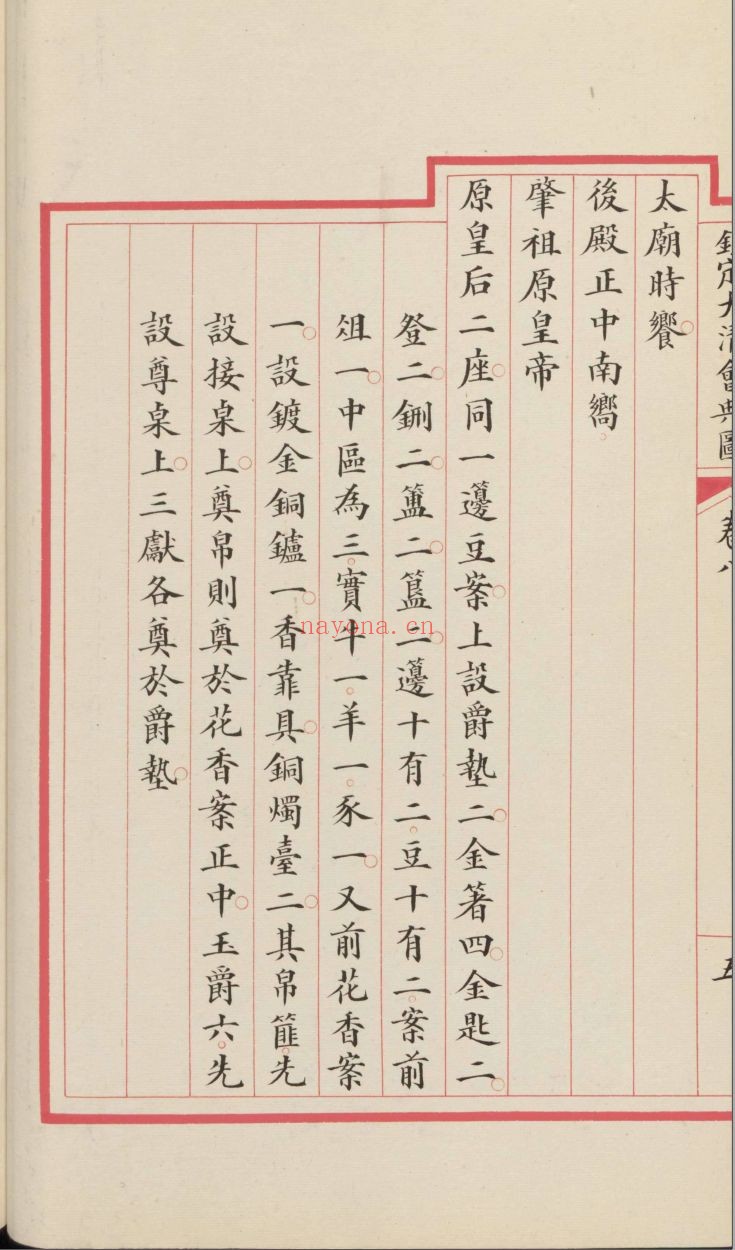 欽定大清會典圖 卷八 五
太廟時饗。
後殿正中南嚮。
肇祖原皇帝
原皇后二座。同一籩豆案。上設爵墊二。金箸四。金匙二。
登二。鉶二。簠二。簋二。籩十有二。豆十有二。案前
俎一。中區為三。實牛一。羊一。豕一。又前花香案
一。設鍍金銅鑪一。香靠具。銅燭臺二。其帛篚。先
設接桌上。奠帛則奠於花香案正中。玉爵六。先
設尊桌上。三獻各奠於爵墊。
nayona.cn